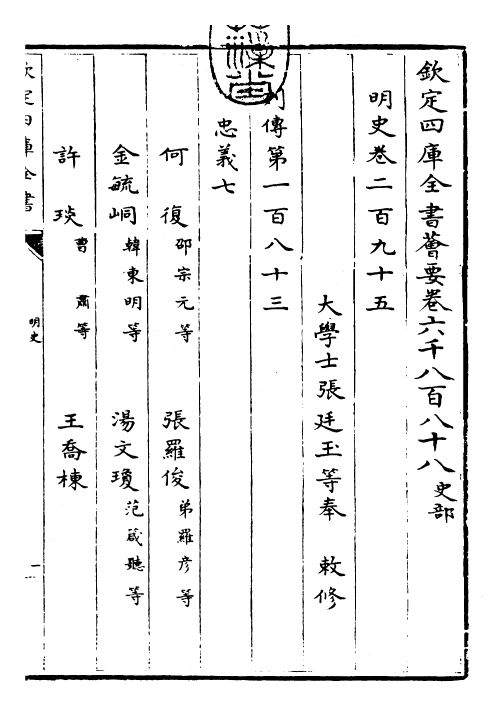 欽定四庫全書薈要卷六千八百八十八 史部
明史卷二百九十五
大學士張廷玉等奉 敕修
列傳第一百八十三
忠義七
何復 邵宗元等 張羅俊 弟羅彥等
金毓峒 韓東明等 湯文瓊 范箴聽等
許琰 曹肅等 王喬棟
欽定四庫全書
明史
一